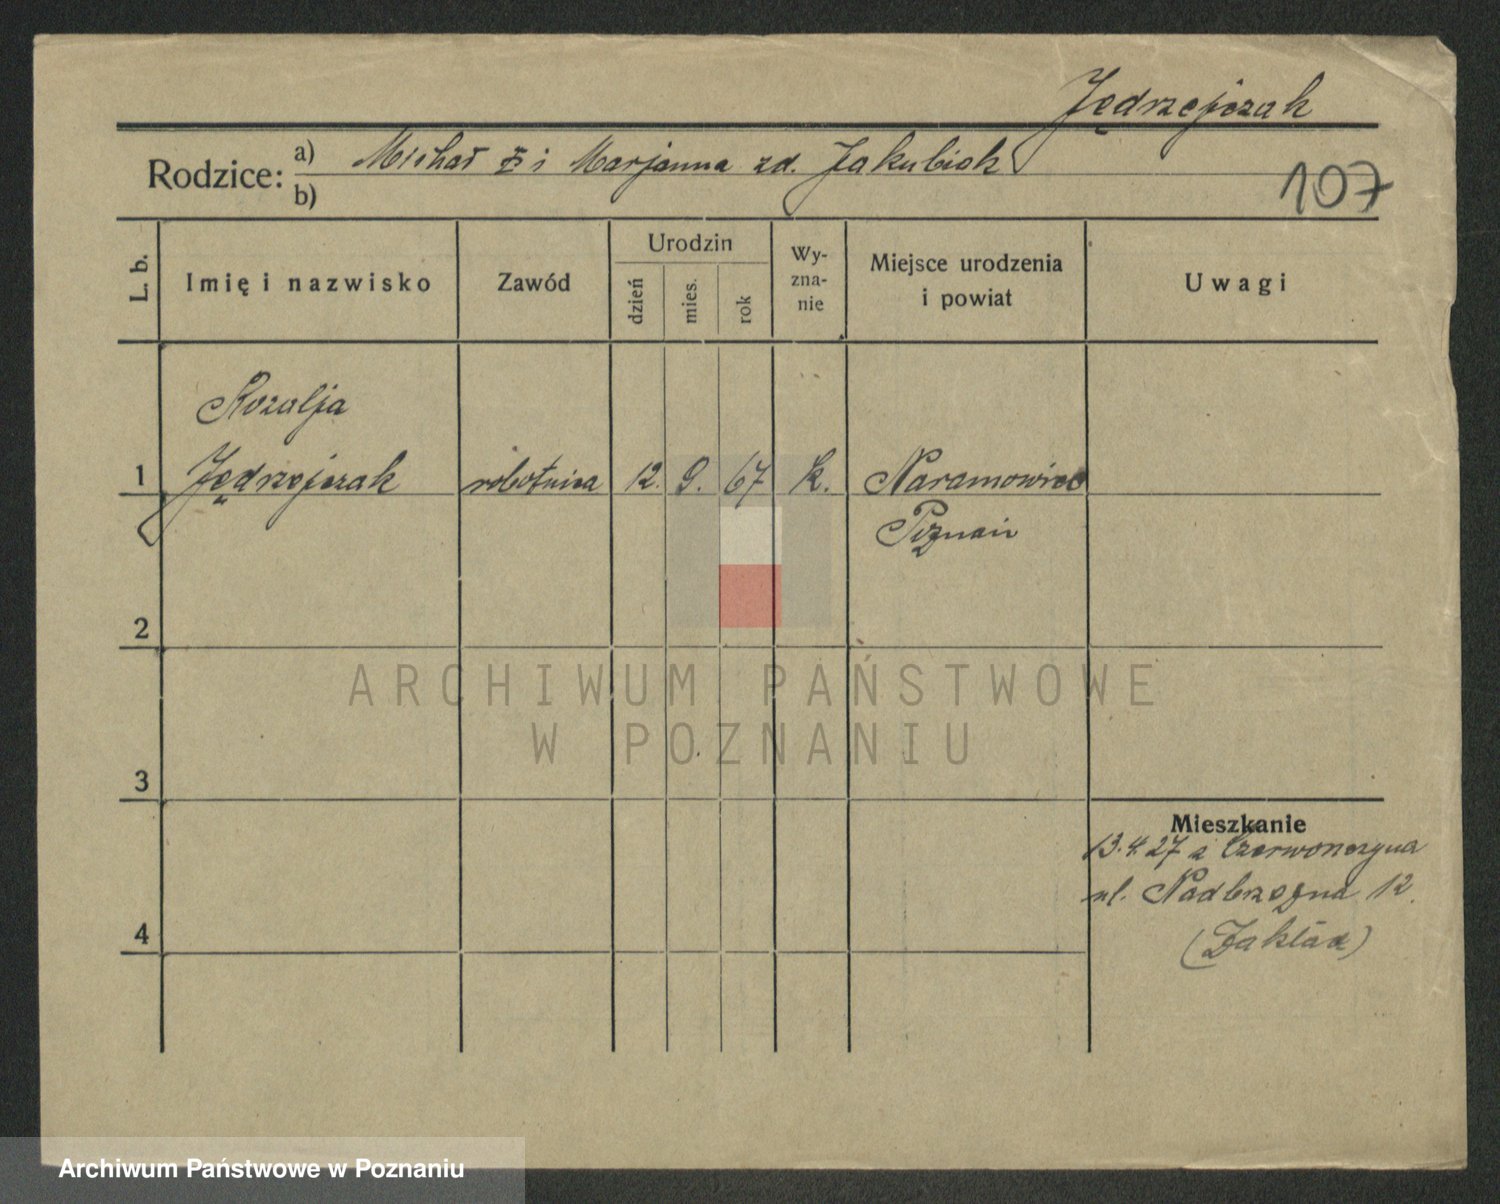 Jędrzejczak
Rodzice: a) Michał i Marjanna zd. Jakubiak
b)
107
L. b.
Imię i nazwisko
Zawód
Urodzin
dzień
mies.
rok
Wy-
zna-
nie
Miejsce urodzenia
i powiat
Uwagi
Rozalja
1 Jędrzejczak robotnica 12. 9. 67 k. Naramowice
Poznań
2
ARCHIWUM PAŃSTWOWE
W POZNANIU
3
Mieszkanie
13.4.27 z
ul. Nadbrzeżna 12.
(Zakład)
4
Archiwum Państwowe w Poznaniu